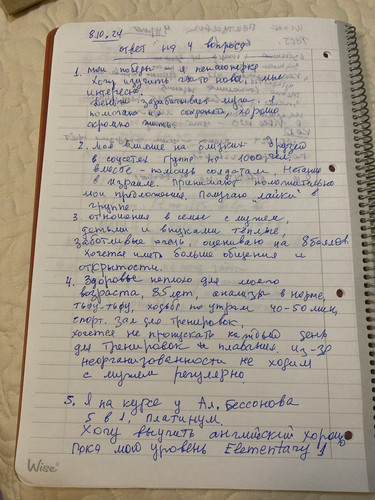 8.10.24
ответ на 4 вопроса
1. мои победы я пенсионерка
Хочу изучить что-то новое, мне
интересно.
Деньги зарабатывает муж, я
помогаю их сохранять, хорошо
скромно жить.
2. моё влияние на близких друзей
в соцсетях группе на 1000 чел.
вместе - помощь солдатам,
в израиле. Принимают положительно
мои предложения. Получаю "лайки" в
группе.
3. отношения в семье с мужем,
детьми и внуками тёплые,
заботливые очень, оцениваю на 8 баллов.
Хочется иметь больше общения и
открытости.
4. Здоровье неплохо для моего
возраста, 85 лет, анализы в норме,
тьфу-тьфу, ходьба по утрам 40-50 мин,
спорт. зал для тренировок,
хочется не пропускать каждый день
для тренировок и плавания. из-за
неорганизованности не ходим
с мужем регулярно.
5. Я на курсе у Ал. Бессонова
5 в 1, платинум.
Хочу выучить английский хорошо
пока мой уровень Elementary 1
Wise